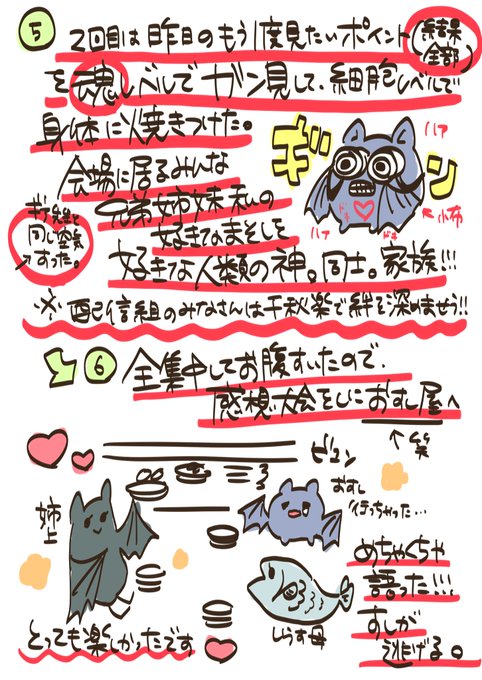 5
2回目は昨日のもう1度見たいポイント(結果全部)
を魂レベルでガン見して、細胞レベルで
身体に焼きつけた。
ギン
ハァ
ハァ
ドキ
ドキ
小布
会場に居るみんな
兄弟姉妹 私の
好きなまそしを
好きな人類の神。同士。家族!!!
同じ空気
すった。
※配信組のみなさんは千秋楽で絆を深めませう!!
6
全集中してお腹すいたので、
感想大会をしにおすし屋へ
↑笑
ビュン
姉上
おすし
行っちゃった…
しらす母
めちゃくちゃ
語った!!!
すしが
逃げる。
とっても楽しかったです